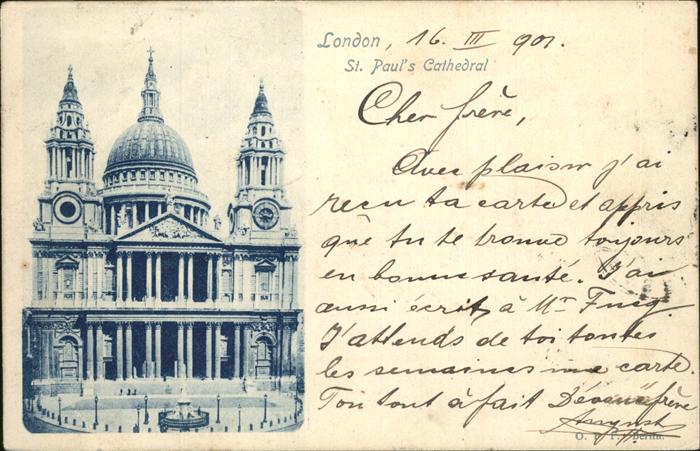 London, 16. III 901.
St. Paul's Cathedral
Cher frère,
Avec plaisir j'ai
reçu ta carte et appris
que tu te trouve toujours
en bonne santé. J'ai
aussi écrit à Mr
J'attends de toi toutes
les semaines une carte.
Ton tout à fait frère
August
Berlin.